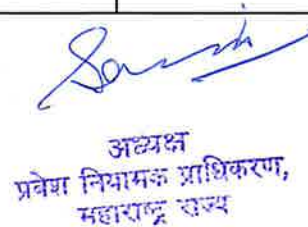 अध्यक्ष
प्रवेश नियामक प्राधिकरण,
महाराष्ट्र राज्य